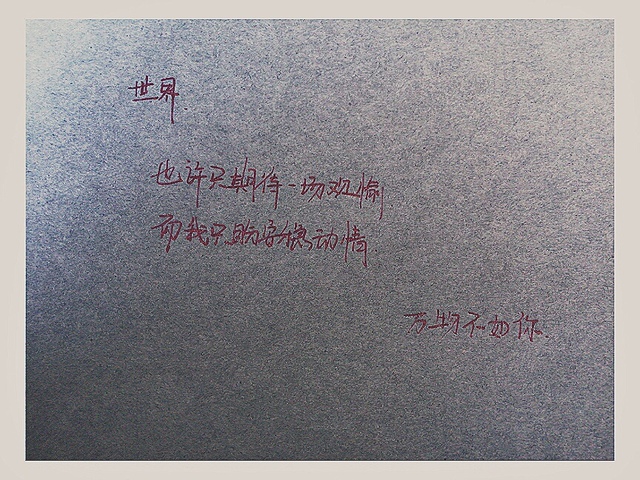 世界
也许只期待一场欢愉
而我只盼字 动情
万物不如你.